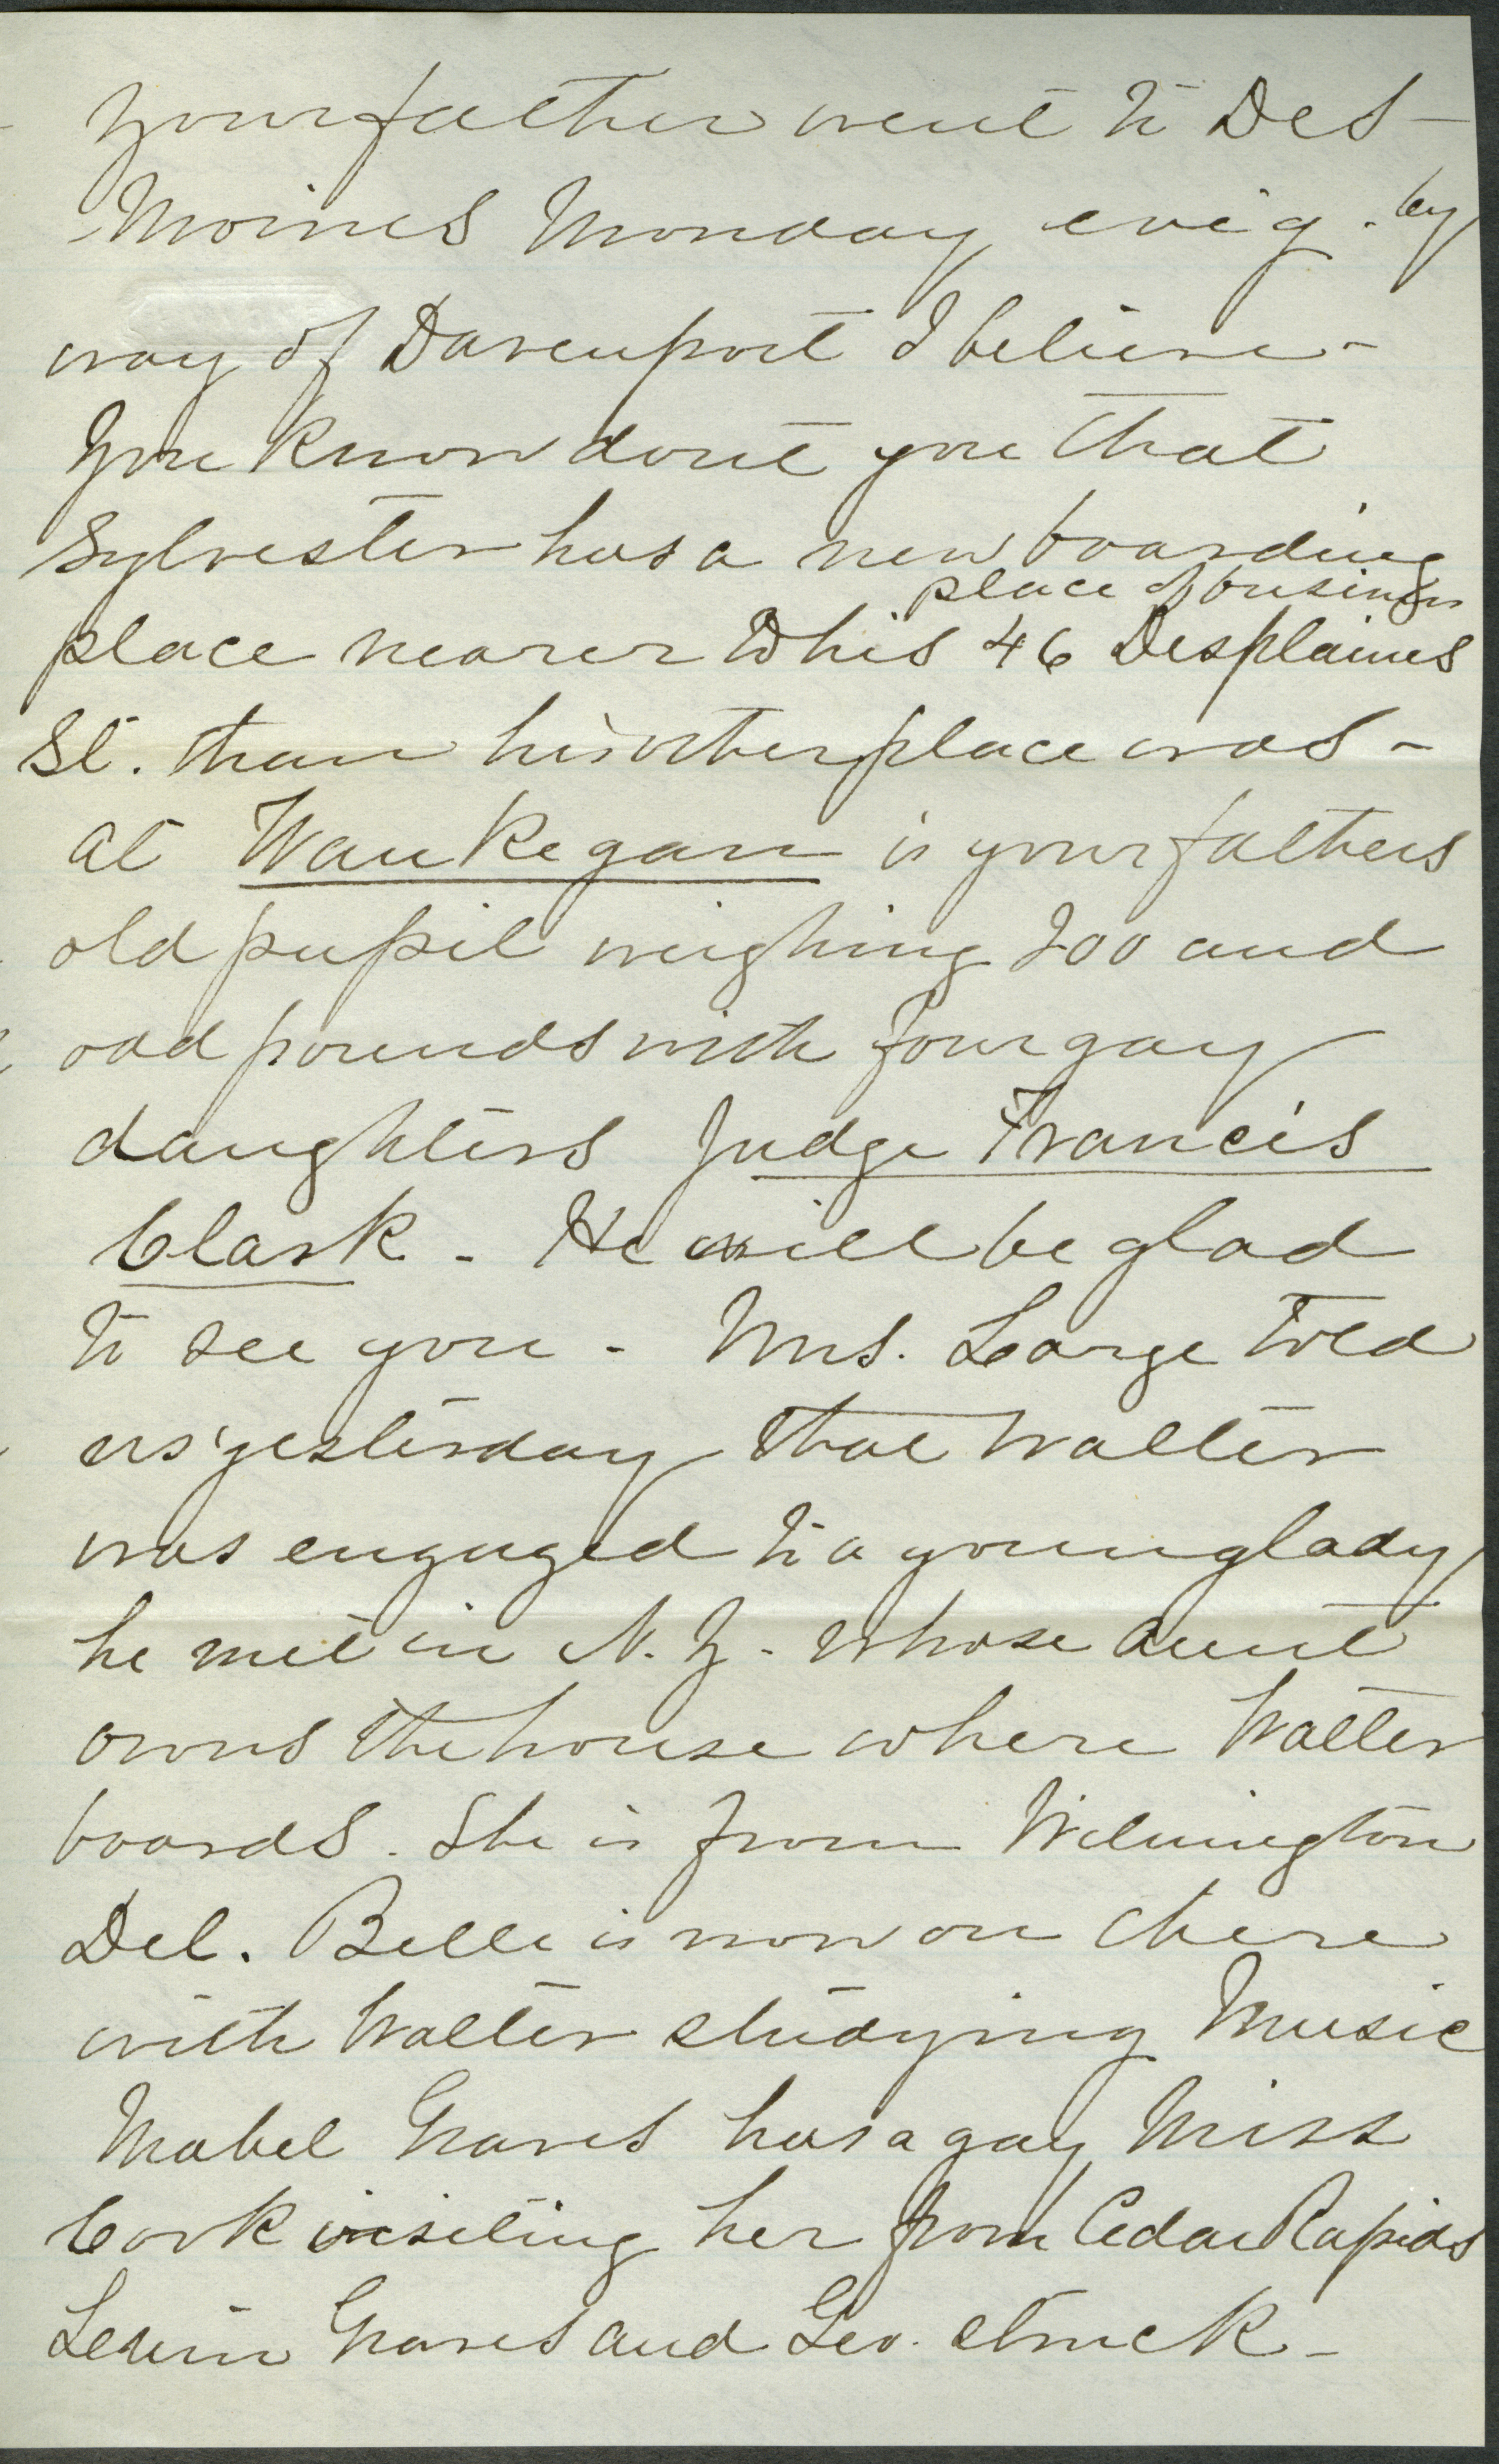 your father went to Des-
Moines Monday eve'g. by
way of Davenport I believe-
You know dont you that
Sylvester has a new boarding
place of business
place nearer to his 46 Desplaines
St. than his other place was-
at Waukegan is your fathers
old pupil weighing 200 and
odd pounds with four gay
daughters Judge Francis
Clark - He will be glad
to see you - Mrs. Large told
us yesterday that Walter
was engaged to a young lady
he met in N. Y. whose aunt
owns the house where Walter
boards. She is from Wilmington
Del. Belle is now on there
with Walter studying Music
Mabel Graves has a gay Miss
Cook visiting her from Cedar Rapids
Graves and Geo. struck-